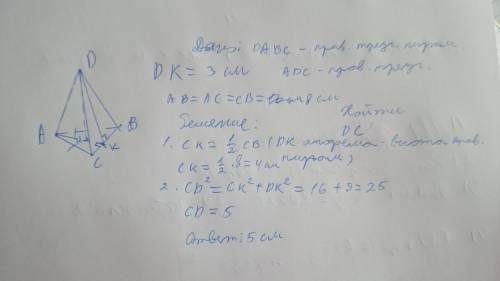 D
A
B
C
K
Дано: DABC – прав. треуг. пирам
DK = 3 см ADC – прав. треуг.
AB = AC = CB = 8 см
Найти
DC
Решение:
1. CK = 1/2 CB (DK апофема – высота прав.
CK = 1/2 · 8 = 4 см пирам)
2. CD² = CK² + DK² = 16 + 9 = 25
CD = 5
Ответ: 5 см